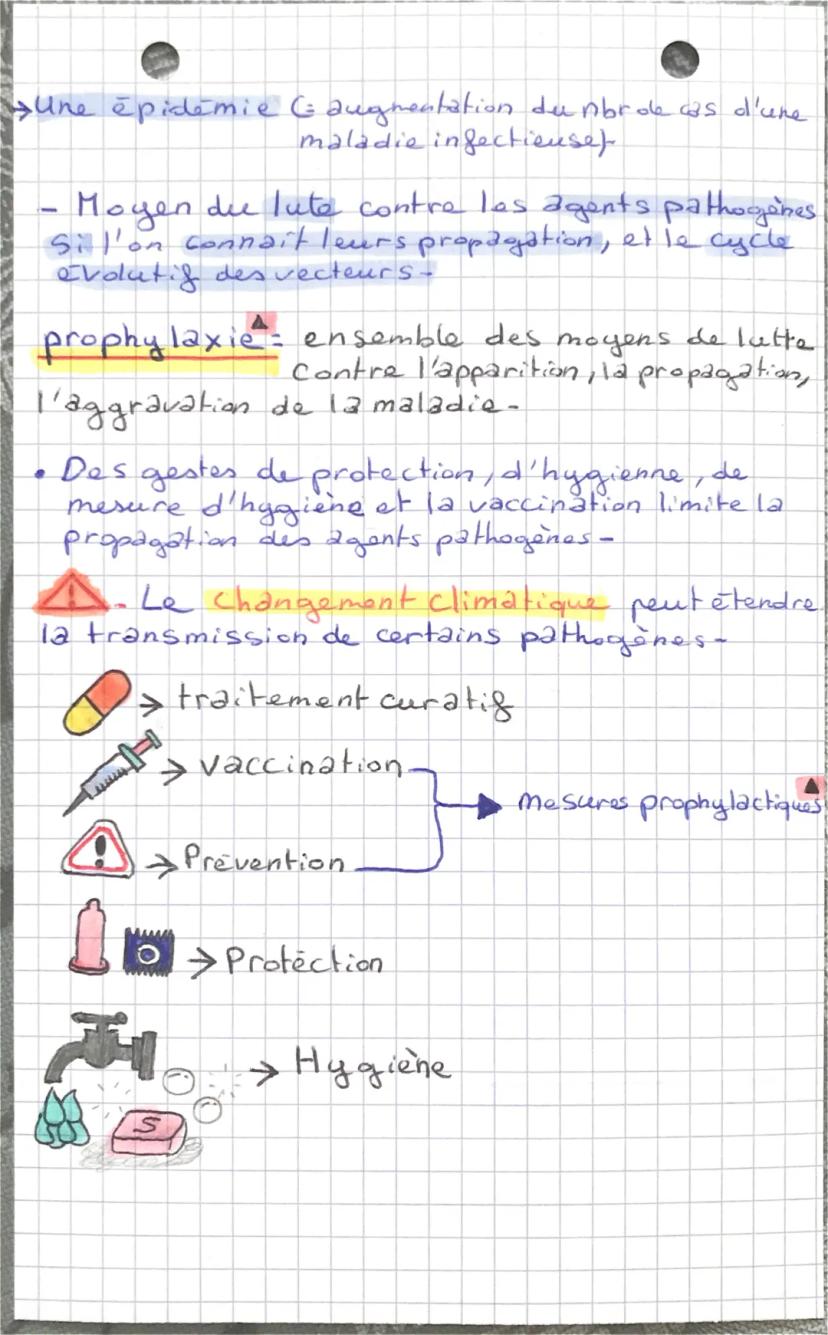 → Une épidémie (= augmentation du nbr de cas d'une
maladie infectieuse)-
- Moyen du lute contre les agents pathogènes
si l'on connaît leurs propagation, et le cycle
évolutif des vecteurs-
prophylaxie = ensemble des moyens de lutte
contre l'apparition, la propagation,
l'aggravation de la maladie-
• Des gestes de protection, d'hygienne, de
mesure d'hygiène et la vaccination limite la
propagation des agents pathogènes-
- Le changement climatique peut étendre
la transmission de certains pathogènes-
→ traitement curatif
→ vaccination
mesures prophylactiques
→ Prévention
→ Protéction
→ Hygiène
S